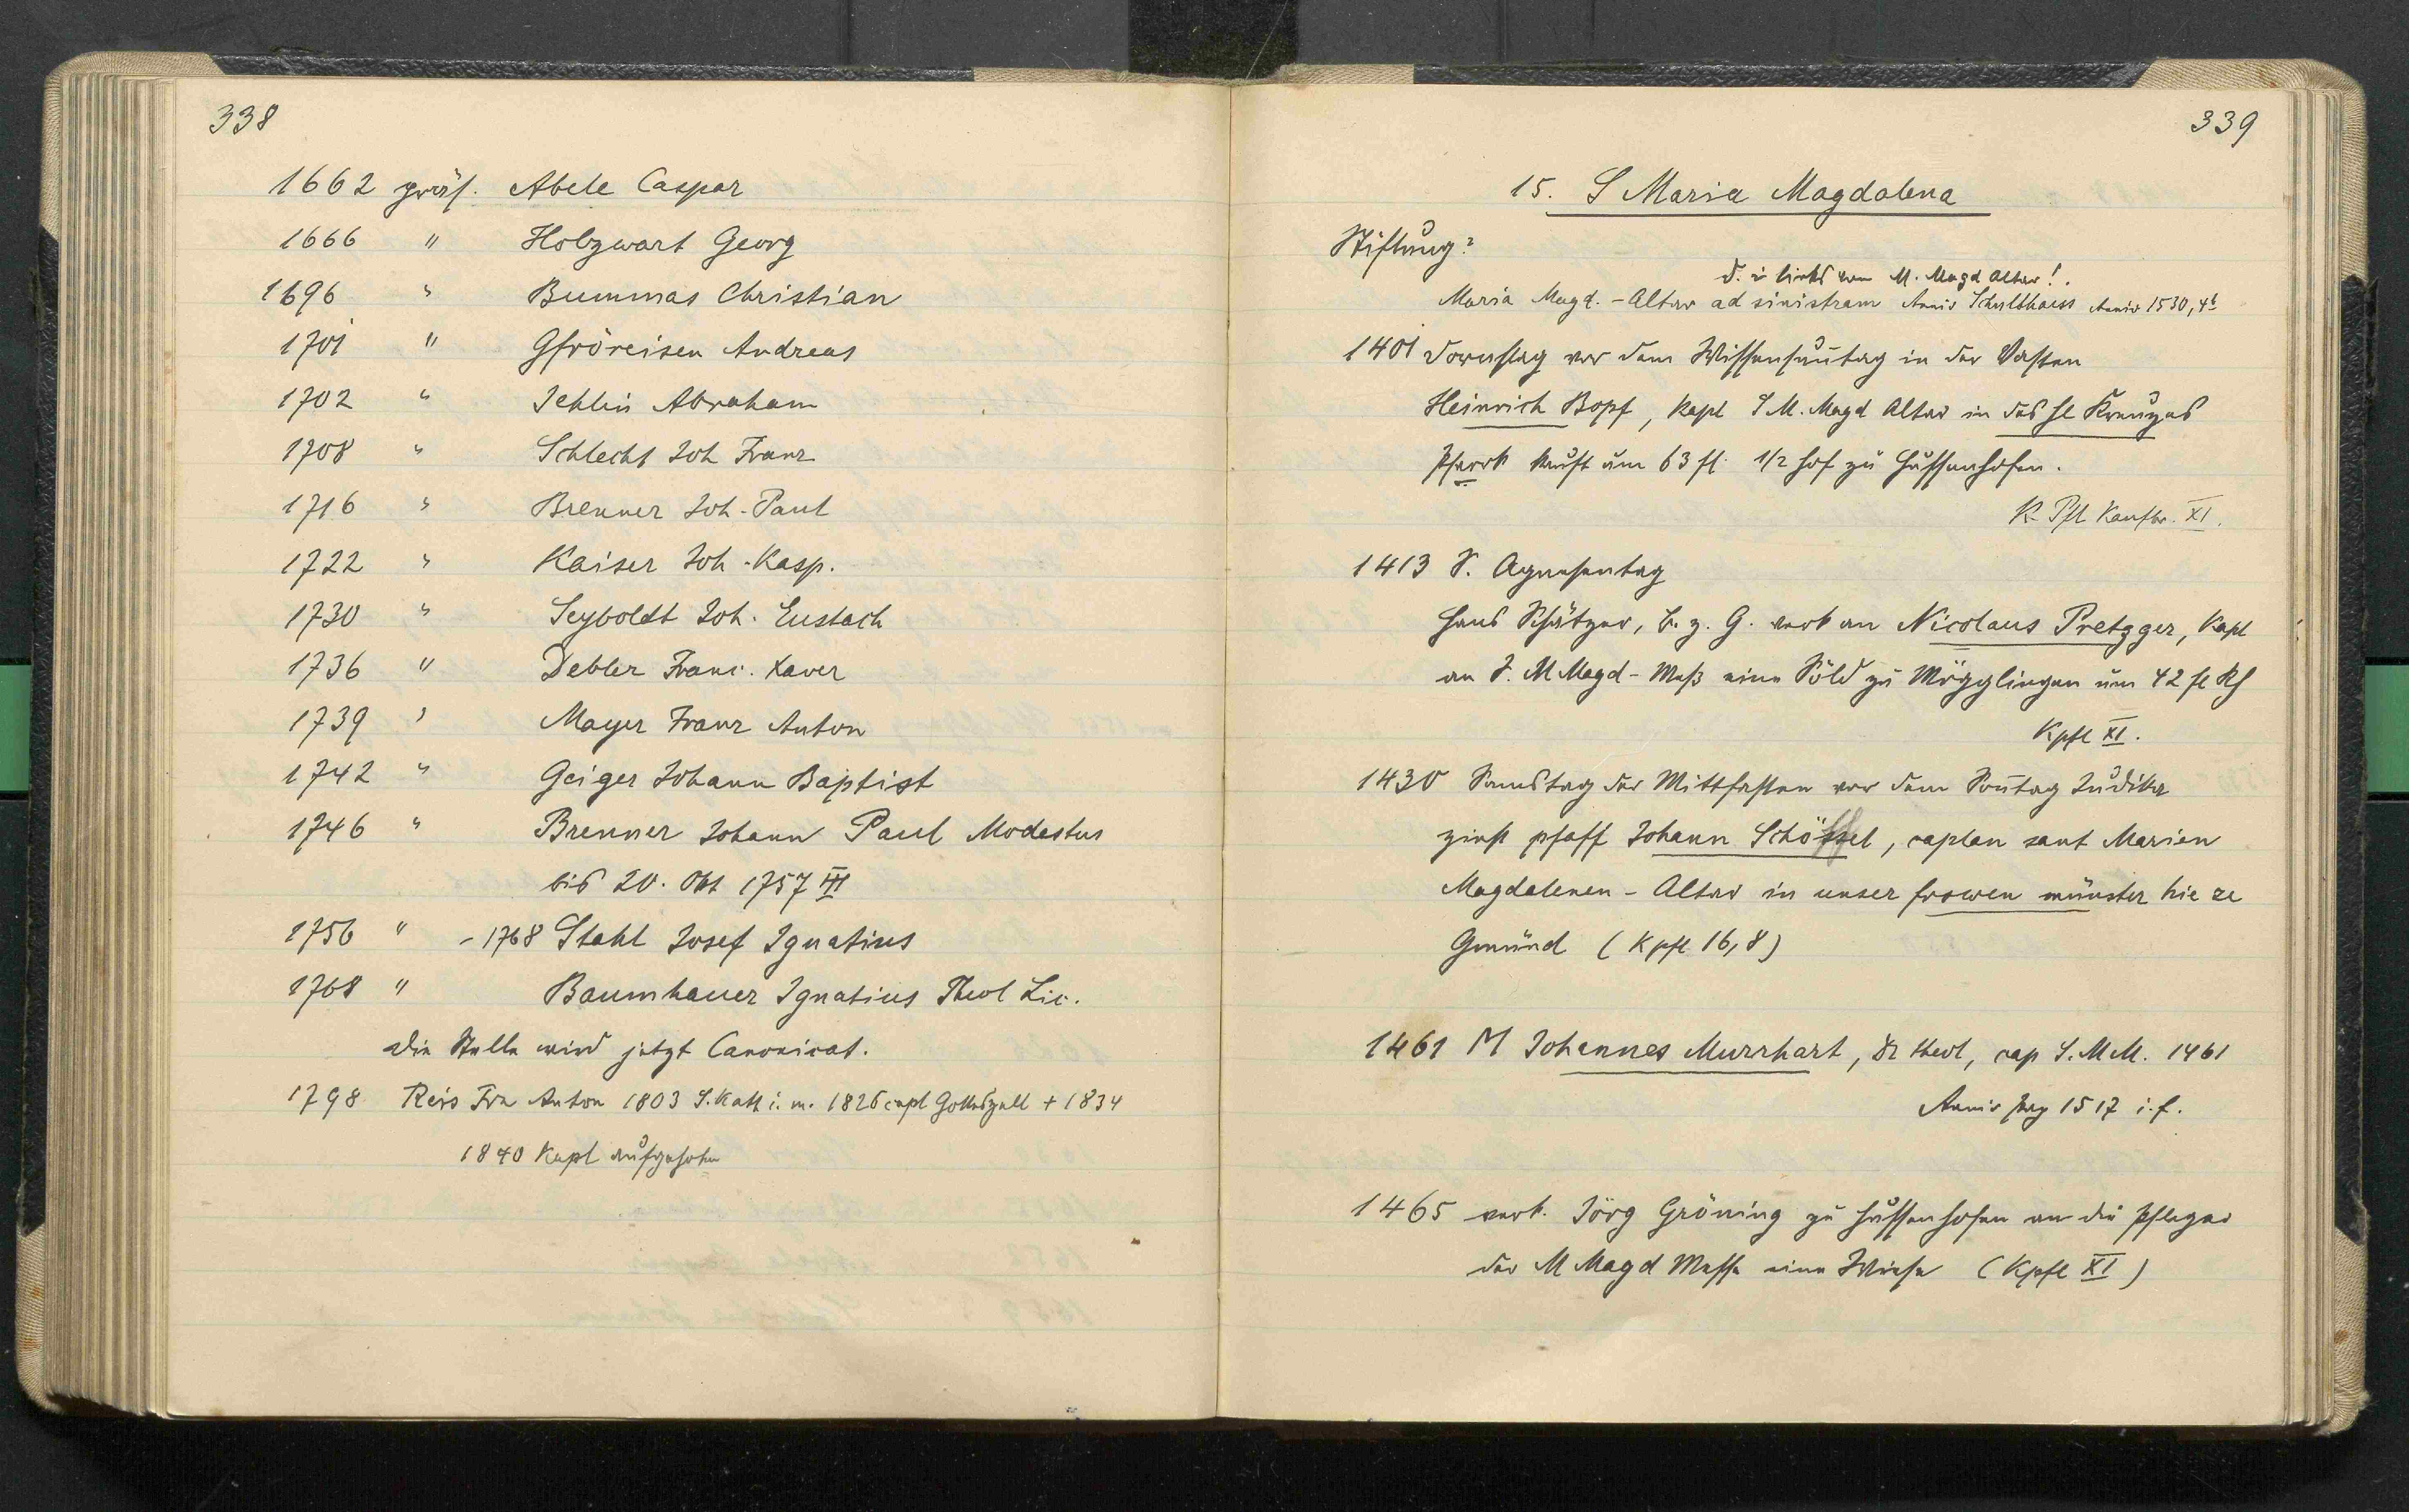 338
1662 präs. Abele Caspar
1666 " Holzwart Georg
1696 " Bummas Christian
1701 " Gfröreisen Andreas
1702 " Jehlin Abraham
1708 " Schlecht Joh Franz
1716 " Brenner Joh. Paul
1722 " Kaiser Joh. Kasp.
1730 " Seyboldt Joh. Eustach
1736 " Debler Franc. Xaver
1739 " Mayer Franz Anton
1742 " Geiger Johann Baptist
1746 " Brenner Johann Paul Modestus
bis 20. Okt 1757 III
1756 " - 1768 Stahl Josef Ignatius
1768 " Baumhauer Ignatius Theol Lic.
Die Stelle wird jetzt Canonicat.
1798 Reis Frz Anton 1803 S. Kath i. m. 1826 capl Gotteszell + 1834
1840 Kapl aufgehoben
339
15. S Maria Magdalena
Stiftung?
d. i. links vom M. Magd Altar!.
Maria Magd. - Altar ad sinistram Anniv Schulthaiss Anniv 1530, 4b
1401 Dornstag vor dem Wissensuntag in der Vasten
Heinrich Bopf, Kapl S M. Magd Altar in des hl Kreuzes
Pfarrk kauft um 63 fl. 1/2 Hof zu Hussenhofen.
K. Pfl Kaufbr. XI.
1413 S. Agnesentag
Hans Schätzer, b. z. G. verk an Nicolaus Pretzger, Kapl
an S. M Magd - Meß eine Söld zu Mögglingen um 42 fl Rh
Kpfl XI.
1430 Samstag der Mittfasten vor dem Sontag Judika
zinst pfaff Johann Schöffel, caplan sant Marien
Magdalenen - Altar in unser frowen münster hie ze
Gmünd (Kpfl 16,8)
1461 M Johannes Murrhart, Dr theol, cap S. M M. 1461
Anniv 1517 i. f.
1465 verk. Jörg Gröning zu Hussenhofen an die Pfleger
der M Magd Messe eine Wiese (Kpfl XI)